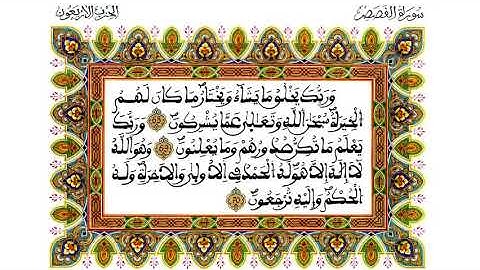 سورة القصص
الحزب الأربعون
وَرَبُّكَ يَخْلُقُ مَا يَشَاءُ وَيَخْتَارُ مَا كَانَ لَهُمُ
الْخِيَرَةُ سُبْحَٰنَ اللَّهِ وَتَعَٰلَىٰ عَمَّا يُشْرِكُونَ وَرَبُّكَ
يَعْلَمُ مَا تُكِنُّ صُدُورُهُمْ وَمَا يُعْلِنُونَ وَهُوَ اللَّهُ
لَا إِلَٰهَ إِلَّا هُوَ لَهُ الْحَمْدُ فِي الْأُولَىٰ وَالْآخِرَةِ وَلَهُ
الْحُكْمُ وَإِلَيْهِ تُرْجَعُونَ